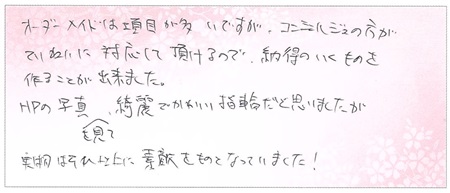 オーダーメイドは項目が多いですが、コンシェルジュの方が
ていねいに対応して頂けるので、納得のいくものを
作ることが出来ました。
HPの写真を見て、綺麗でかわいい指輪だと思いましたが
実物はそれ以上に素敵なものとなっていました！